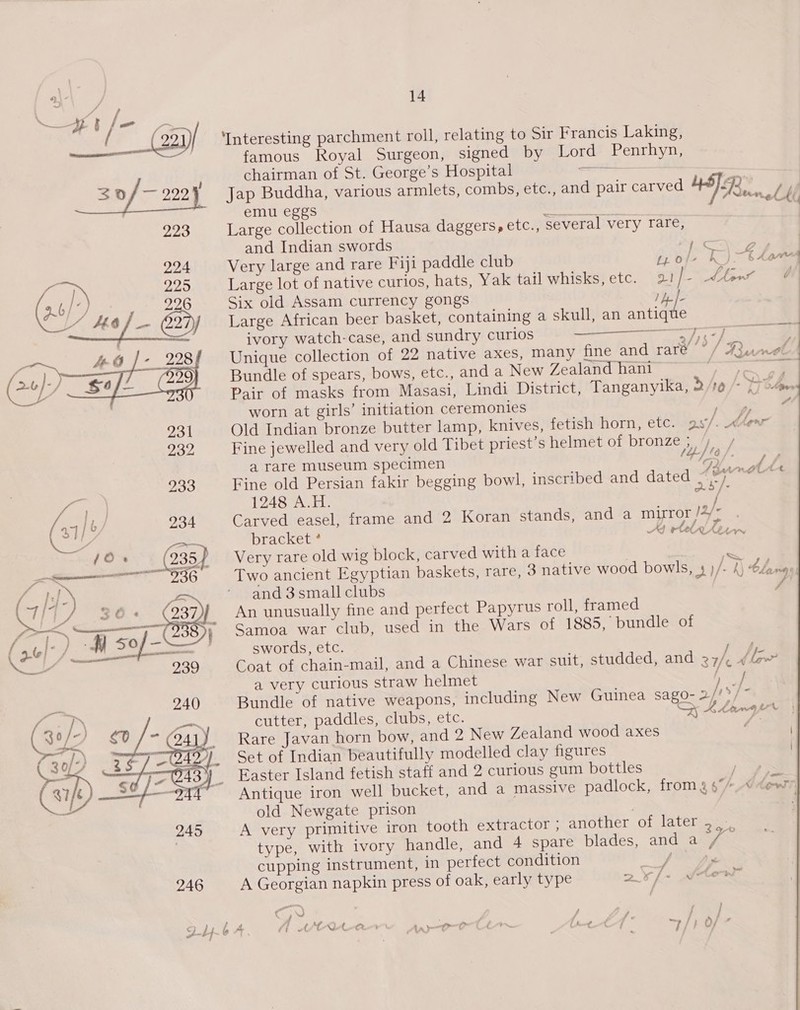 14
221 'Interesting parchment roll, relating to Sir Francis Laking,
famous Royal Surgeon, signed by Lord Penrhyn,
chairman of St. George's Hospital
30/- 222 Jap Buddha, various armlets, combs, etc., and pair carved 45/-
emu eggs
223 Large collection of Hausa daggers, etc., several very rare,
and Indian swords
224 Very large and rare Fiji paddle club
225 Large lot of native curios, hats, Yak tail whisks, etc. 21/-
(26/-) 226 Six old Assam currency gongs 14/-
227 Large African beer basket, containing a skull, an antique
ivory watch-case, and sundry curios
228 Unique collection of 22 native axes, many fine and rare
(26/-) 50/- 229 Bundle of spears, bows, etc., and a New Zealand hani
230 Pair of masks from Masasi, Lindi District, Tanganyika,
worn at girls' initiation ceremonies
231 Old Indian bronze butter lamp, knives, fetish horn, etc. 25/-
232 Fine jewelled and very old Tibet priest's helmet of bronze;
a rare museum specimen
233 Fine old Persian fakir begging bowl, inscribed and dated
1248 A.H.
234 Carved easel, frame and 2 Koran stands, and a mirror 12/-
bracket
235 Very rare old wig block, carved with a face
236 Two ancient Egyptian baskets, rare, 3 native wood bowls,
and 3 small clubs
237 An unusually fine and perfect Papyrus roll, framed
(26/-) 50/- 238 Samoa war club, used in the Wars of 1885, bundle of
swords, etc.
239 Coat of chain-mail, and a Chinese war suit, studded, and
a very curious straw helmet
240 Bundle of native weapons, including New Guinea sago-
cutter, paddles, clubs, etc.
(30/-) 241 Rare Javan horn bow, and 2 New Zealand wood axes
(30/-) 35/- 242 Set of Indian beautifully modelled clay figures
243 Easter Island fetish staff and 2 curious gum bottles
244 Antique iron well bucket, and a massive padlock, from
old Newgate prison
245 A very primitive iron tooth extractor; another of later
type, with ivory handle, and 4 spare blades, and a
cupping instrument, in perfect condition
246 A Georgian napkin press of oak, early type